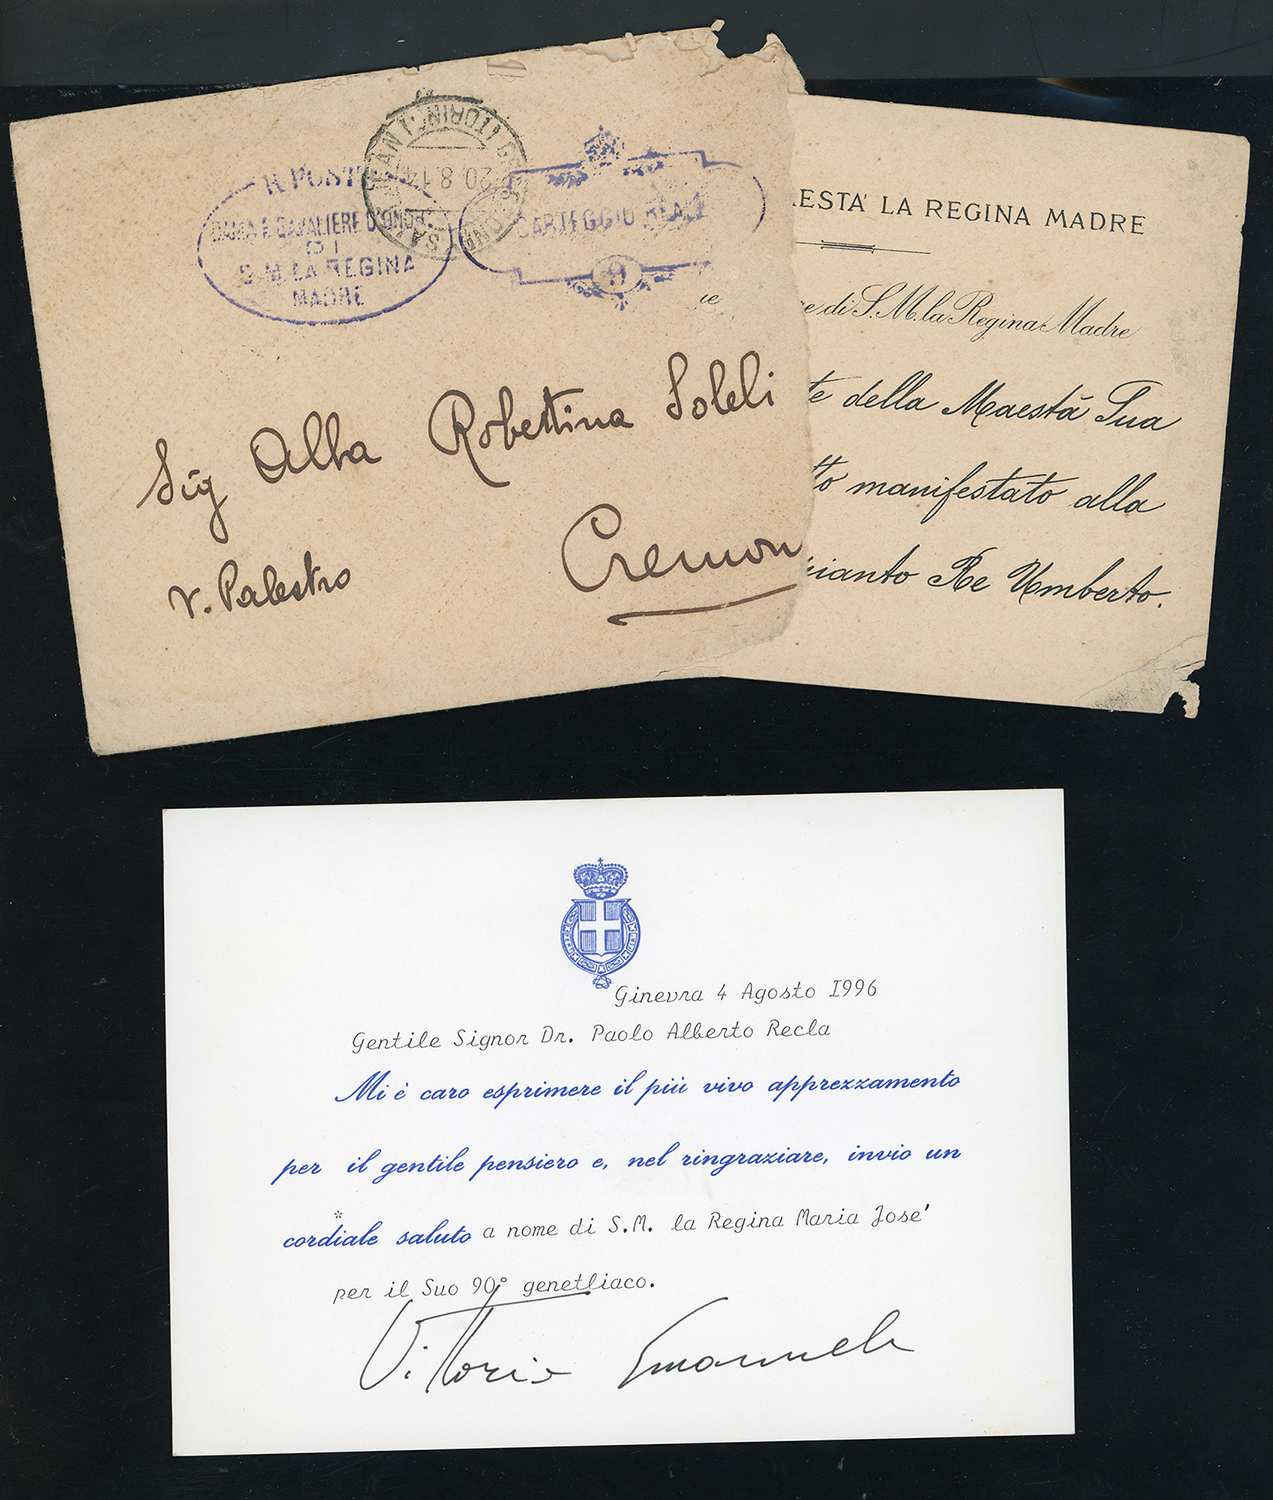 R. POSTE
DAMA E CAVALIERE D'ONORE
DI
S. M. LA REGINA
MADRE
(TORINO)
20.8.14
CARTEGGIO REALE
Sig Alba Robettina Soleli
v. Palestro
Cremon
MAESTA' LA REGINA MADRE
re di S. M. la Regina Madre
te della Maestà Sua
tto manifestato alla
pianto Re Umberto.
Ginevra 4 Agosto I996
Gentile Signor Dr. Paolo Alberto Recla
Mi è caro esprimere il più vivo apprezzamento
per il gentile pensiero e, nel ringraziare, invio un
*
cordiale saluto a nome di S.M. la Regina Maria Jose'
per il Suo 90° genetliaco.
Vittorio Emanuele